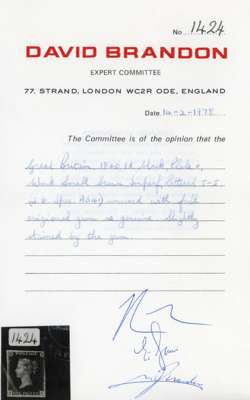 No. 1424
DAVID BRANDON
EXPERT COMMITTEE
77, STRAND, LONDON WC2R ODE, ENGLAND
Date 14-2-1978
The Committee is of the opinion that the
Great Britain 1840 1d Black Plate
Wmk Small Crown Imperf, lettered T-I
unused with full
original gum is genuine. Slightly
stained by the gum.
1424
POSTAGE